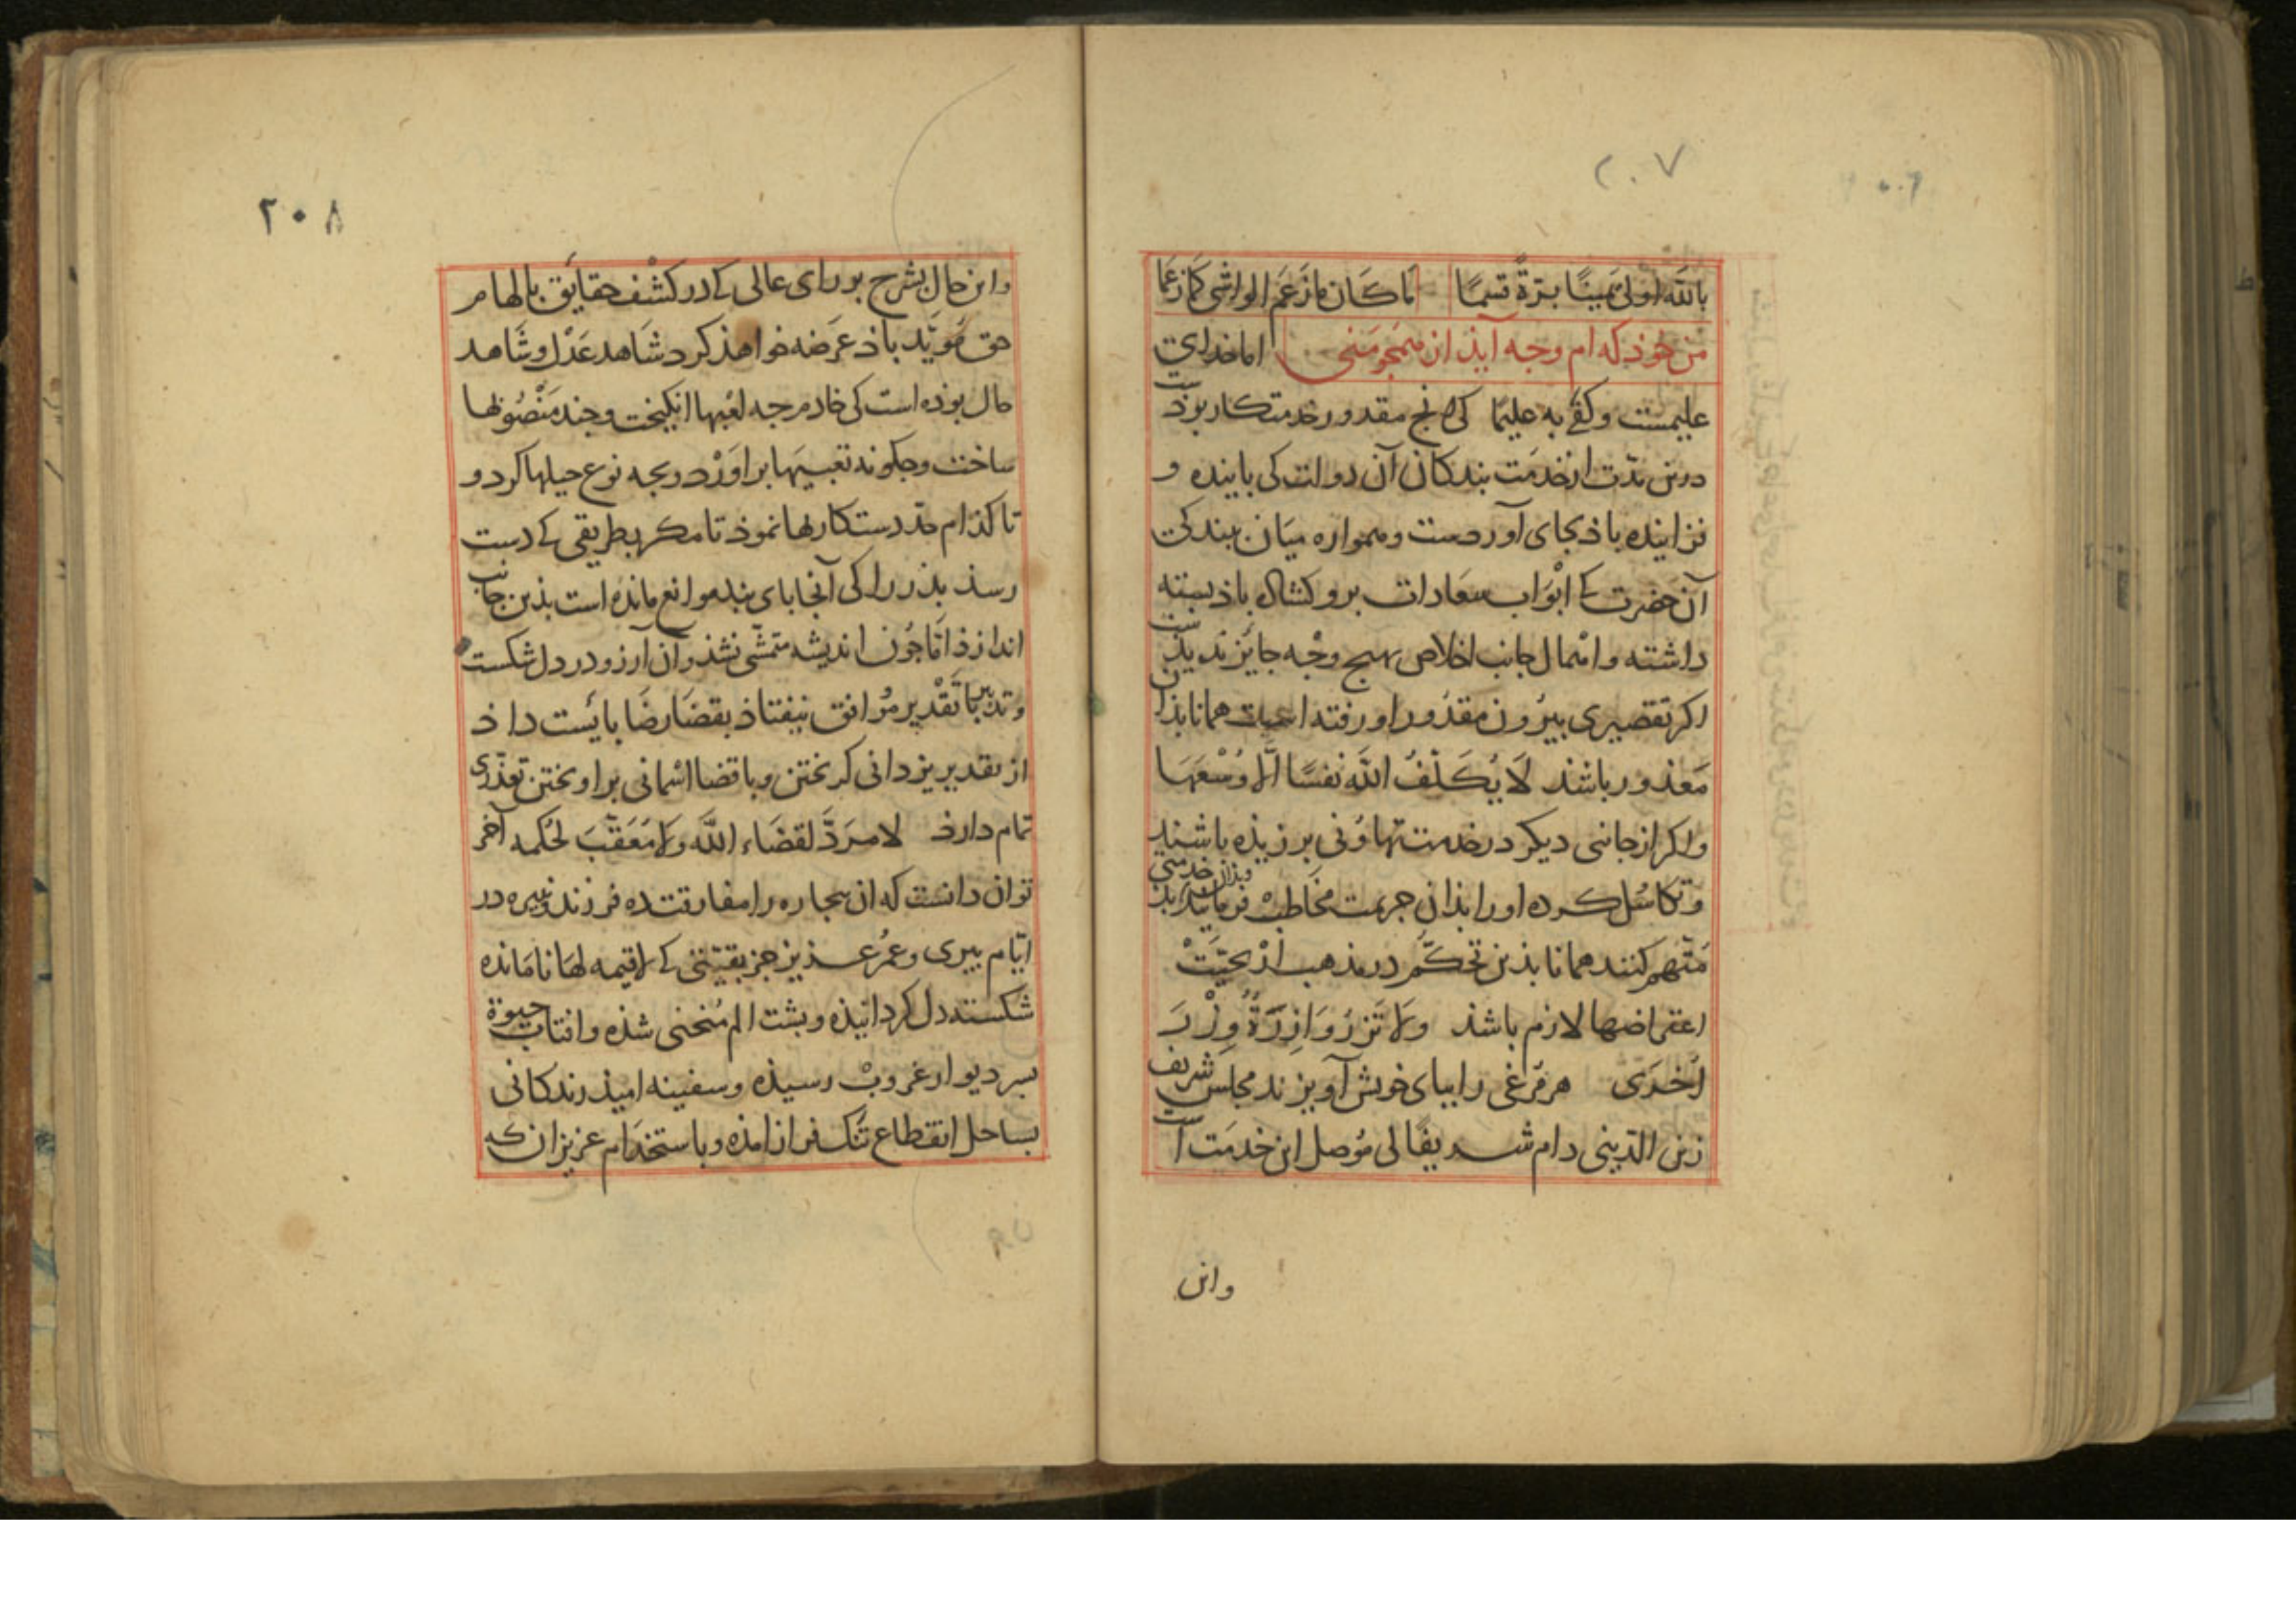 ۲۰۷
بالله اولی یمینًا برّةً قسمًا ما کان ما زَعَم الواشی کما زعما
من خوذ که ام وجه آیذ از همجو منی اما خدای
علیمست وکفی به علیمًا کی انج مقدور خدمتکار بوذست
درین مدّت از خدمَت بندکان آن دولت کی باینده و
فزاینده باذ بجای آوردست وهمواره میان بندکی
آن حضرت کی ابْوَاب سعادات برو کشاده باذ بسته
داشته واهمال جانب اخلاص بهیج وجْه جایز ندیذست
اکر تقصیری بیرُون مقذور او رفته است همانا بذان
مَعذور باشذ لَا یُکَلّفُ الله نفسًا الّا وُسْعَهَا
واکر از جانبی دیکر در خدمت تهاوُنی برزیذه باشند
وتکاسُل کرده او را بذان جریمت مخاطب فرمایند وبذان خدمتی
مُتّهم کنند همانا بذین تحکّم در مذهب اریحیّتْ
اعتراضها لازم باشذ ولا تَزرُ وَازِرَةٌ وِزْرَ
اُخرَی هر مُرغی را ببای خویش آویزند مجلس شریف
زین الدّینی دام شریفًا لی مُوصل این خدمَت است
واین
۲۰۸
واین حال بشرح بر رای عالی کی در کشْف حقایَق بالهام
حق مُویّد باذ عَرضه خواهذ کرد شاهد عَدْل وشاهد
حال بوذه است کی خادم جه لعْبها انکیخت وجند مَنْصُوبها
ساخت وجکونه تعبیَهَا براوَرْد وبجه نوع حیلها کرد و
تا کذام حدّ دستکاریها نموذ تا مکر بطریقی کی دست
رسذ بذر را کی آنجا بای بند موانع مانده است بذین جانب
اندازذ امّا جُون اندیشه متمشّی نشذ وآن آرزو در دل شکست
وتدبیر با تَقْدیر مُوافق نیفتاذ بقضَا رضَا بایَست داذ
از تقدیر یزدانی کریختن وبا قضا اسْمانی براویختن تعذّری
تمام دارذ لا مرَدَّ لقضَاء الله ولا مُعَقّبَ لحُکمه آخر
توان دانست که ان بیجاره را مفارقت ده فرزند ونبیره در
ایّام بیری وعمُر عزیز جز بقیّتی کی لا قیمه لهَا نامَانده
شکسته دل کردانیذه وبشت الم مُنحنی شذه وافتاب حیوة
بسر دیوار غروبْ رسیذه وسفینه امیذ زندکانی
بساحل انقطاع تنک فراز امذه وباستخدَام عزیزان که